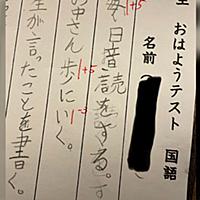 おはようテスト 国語
名前
毎日音読をする。
お中さん歩にいく。
+5
-3
生が言ったことを書く。